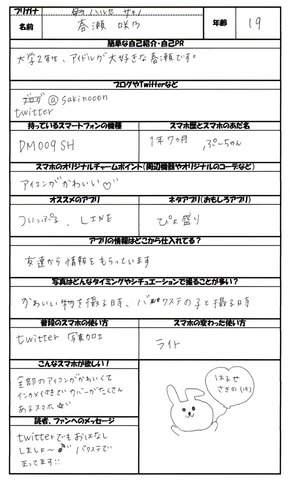 フリガナ ハルセ サキノ
名前 春瀬 咲乃 年齢 19
簡単な自己紹介・自己PR
大学2年生、アイドルが大好きな春瀬です。
ブログやTwitterなど
@sakinooon
twitter
持っているスマートフォンの機種 スマホ歴とスマホのあだ名
DM009SH 1年7ヵ月 ,ぷーちゃん
スマホのオリジナルチャームポイント(周辺機器やオリジナルのコーデなど)
アイコンがかわいい♡
オススメのアプリ ネタアプリ(おもしろアプリ)
ついっぷる、LINE ぴよ盛り
アプリの情報はどこから仕入れてる?
友達から情報をもらっています
写真はどんなタイミングやシチュエーションで撮ることが多い?
かわいい物を撮る時、バクステの子と撮る時
普段のスマホの使い方 スマホの変わった使い方
twitter 写真加工 ライト
こんなスマホが欲しい!
全部のアイコンがかわいくて
インカメイきでカバーがたくさん
あるスマホ☆
はるせ
さきの(19)
読者、ファンへのメッセージ
twitterでもおはなし
しましょ〜♪ バクステで
まってます!!